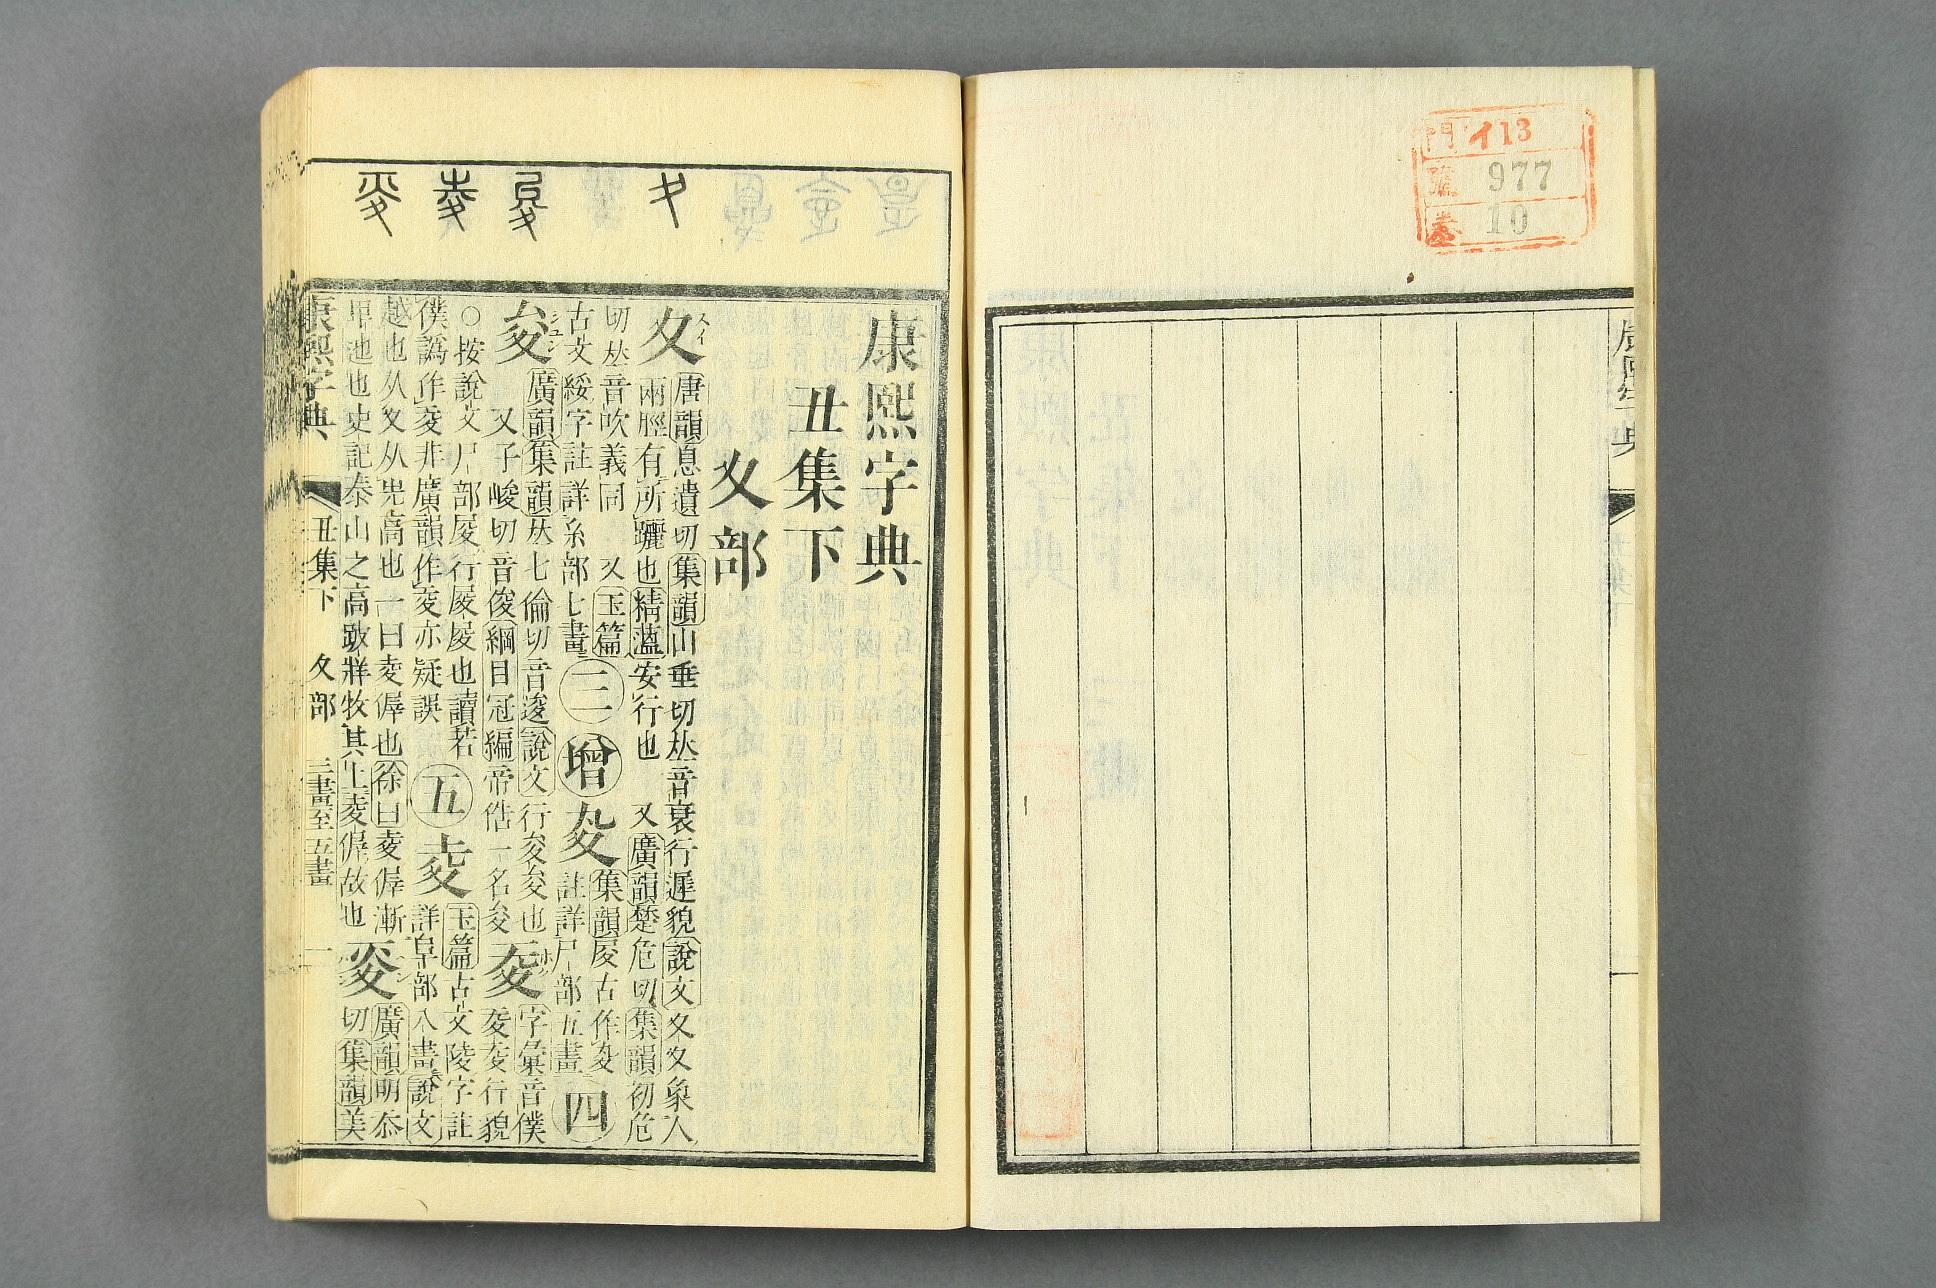 門 イ13
號 977
卷 10
康熙字典
康熙字典
丑集下
夊部
夊 スイ 唐韻息遺切集韻山垂切𠀤音衰行遲貌說文夊夊象人
兩脛有所躧也精薀安行也 又廣韻楚危切集韻初危
切𠀤音吹義同 又玉篇
古文綏字註詳糸部七畫 三 增 集韻㞋古作 註詳尸部五畫 四
夋 シュン 廣韻集韻𠀤七倫切音逡說文行夋夋也
又子峻切音俊綱目冠編帝俈一名夋 㚆 ホク 字彙音僕
㚆㚆行貌
○按說文尸部㞋行㞋㞋也讀若
僕譌作㚆非廣韻作㚆亦疑誤 五 夌 玉篇古文陵字註
詳阜部八畫說文
越也从夊从𡴆高也一曰夌𠊪也徐曰夌𠊪漸
𤰞池也史記泰山之高跛牂牧其上夌𠊪故也 廣韻明忝
切集韻美
康熙字典 丑集下 夊部 三畫至五畫 一